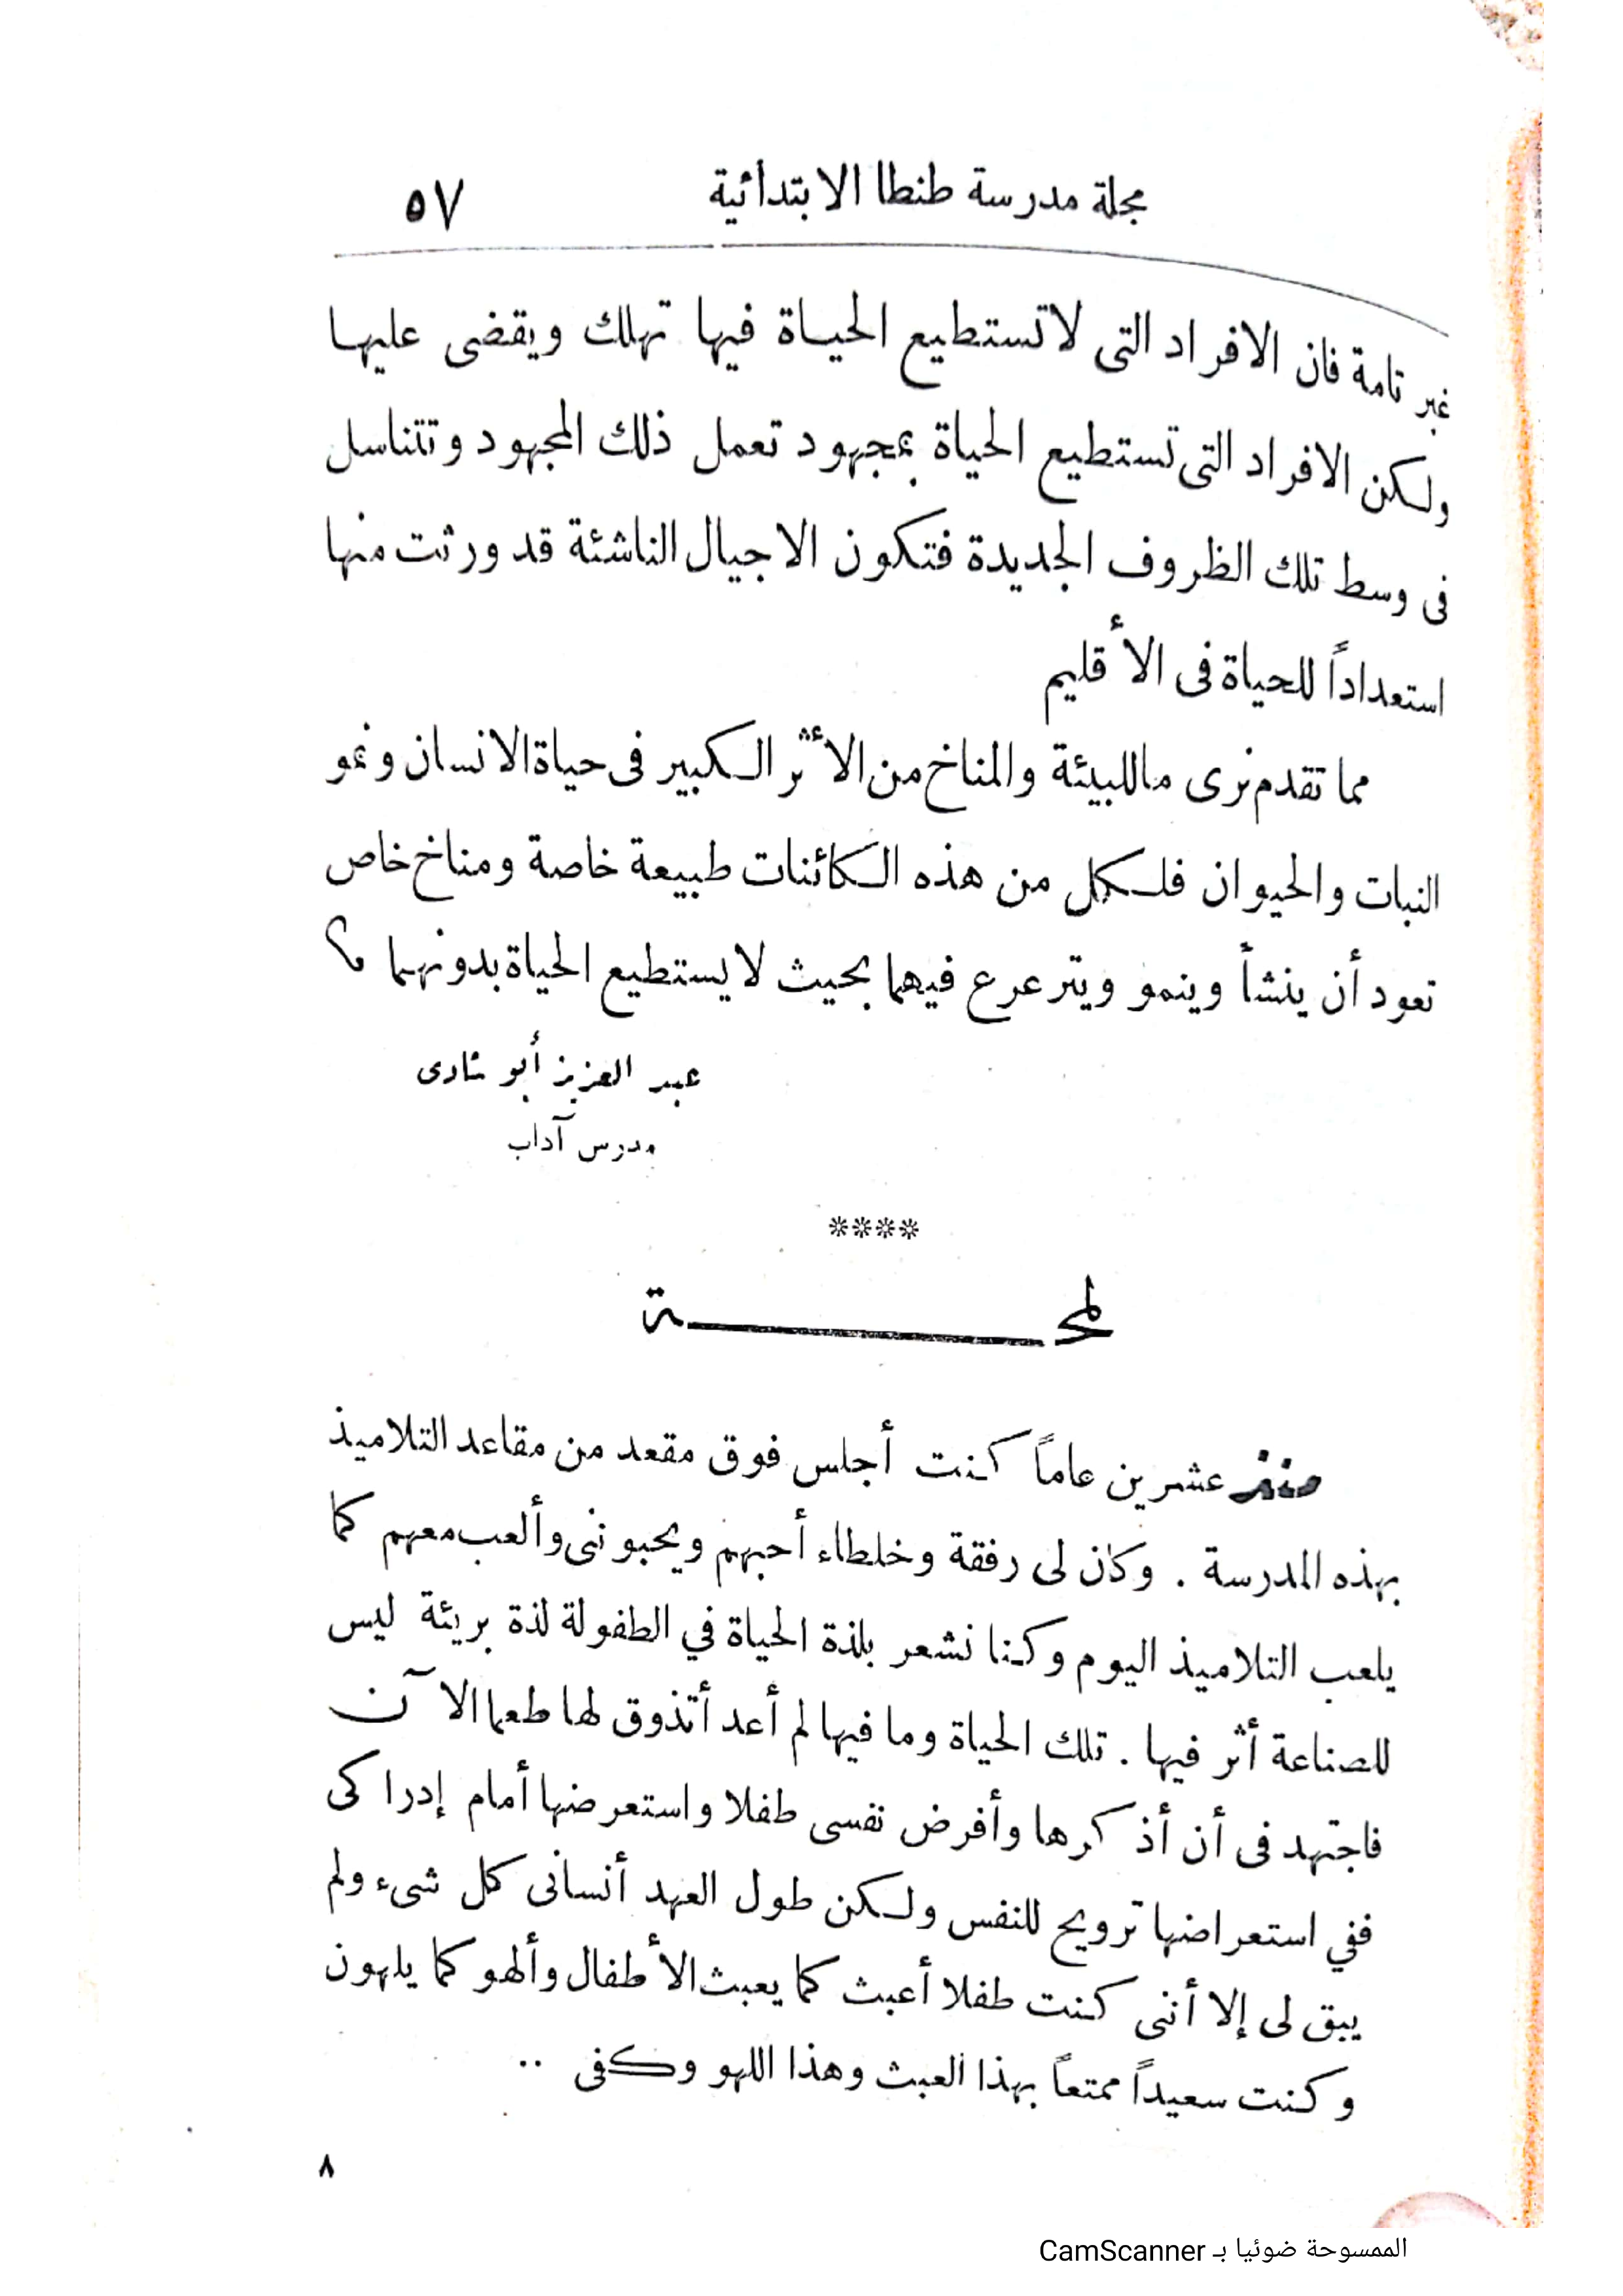 مجلة مدرسة طنطا الابتدائية ٥٧
غير تامة فان الافراد التى لاتستطيع الحياة فيها تهلك ويقضى عليها
ولكن الافراد التى تستطيع الحياة بمجهود تعمل ذلك المجهود وتتناسل
فى وسط تلك الظروف الجديدة فتكون الاجيال الناشئة قد ورثت منها
استعداداً للحياة فى الأقليم
مما تقدم نرى ماللبيئة والمناخ من الأثر الكبير فى حياة الانسان ونمو
النبات والحيوان فلكل من هذه الكائنات طبيعة خاصة ومناخ خاص
تعود أن ينشأ وينمو ويترعرع فيهما بحيث لايستطيع الحياة بدونهما
عبد العزيز أبو شادى
مدرس آداب
****
لمحة
منذ عشرين عاماً كنت أجلس فوق مقعد من مقاعد التلاميذ
بهذه المدرسة . وكان لى رفقة وخلطاء أحبهم ويحبوننى وألعب معهم كما
يلعب التلاميذ اليوم وكنا نشعر بلذة الحياة في الطفولة لذة بريئة ليس
للصناعة أثر فيها . تلك الحياة وما فيها لم أعد أتذوق لها طعما الآن
فاجتهد فى أن أذكرها وأفرض نفسى طفلا واستعرضها أمام إدراكى
ففي استعراضها ترويح للنفس ولكن طول العهد أنسانى كل شىء ولم
يبق لى إلا أننى كنت طفلا أعبث كما يعبث الأطفال وألهو كما يلهون
وكنت سعيداً ممتعاً بهذا العبث وهذا اللهو وكفى ..
٨
الممسوحة ضوئيا بـ CamScanner